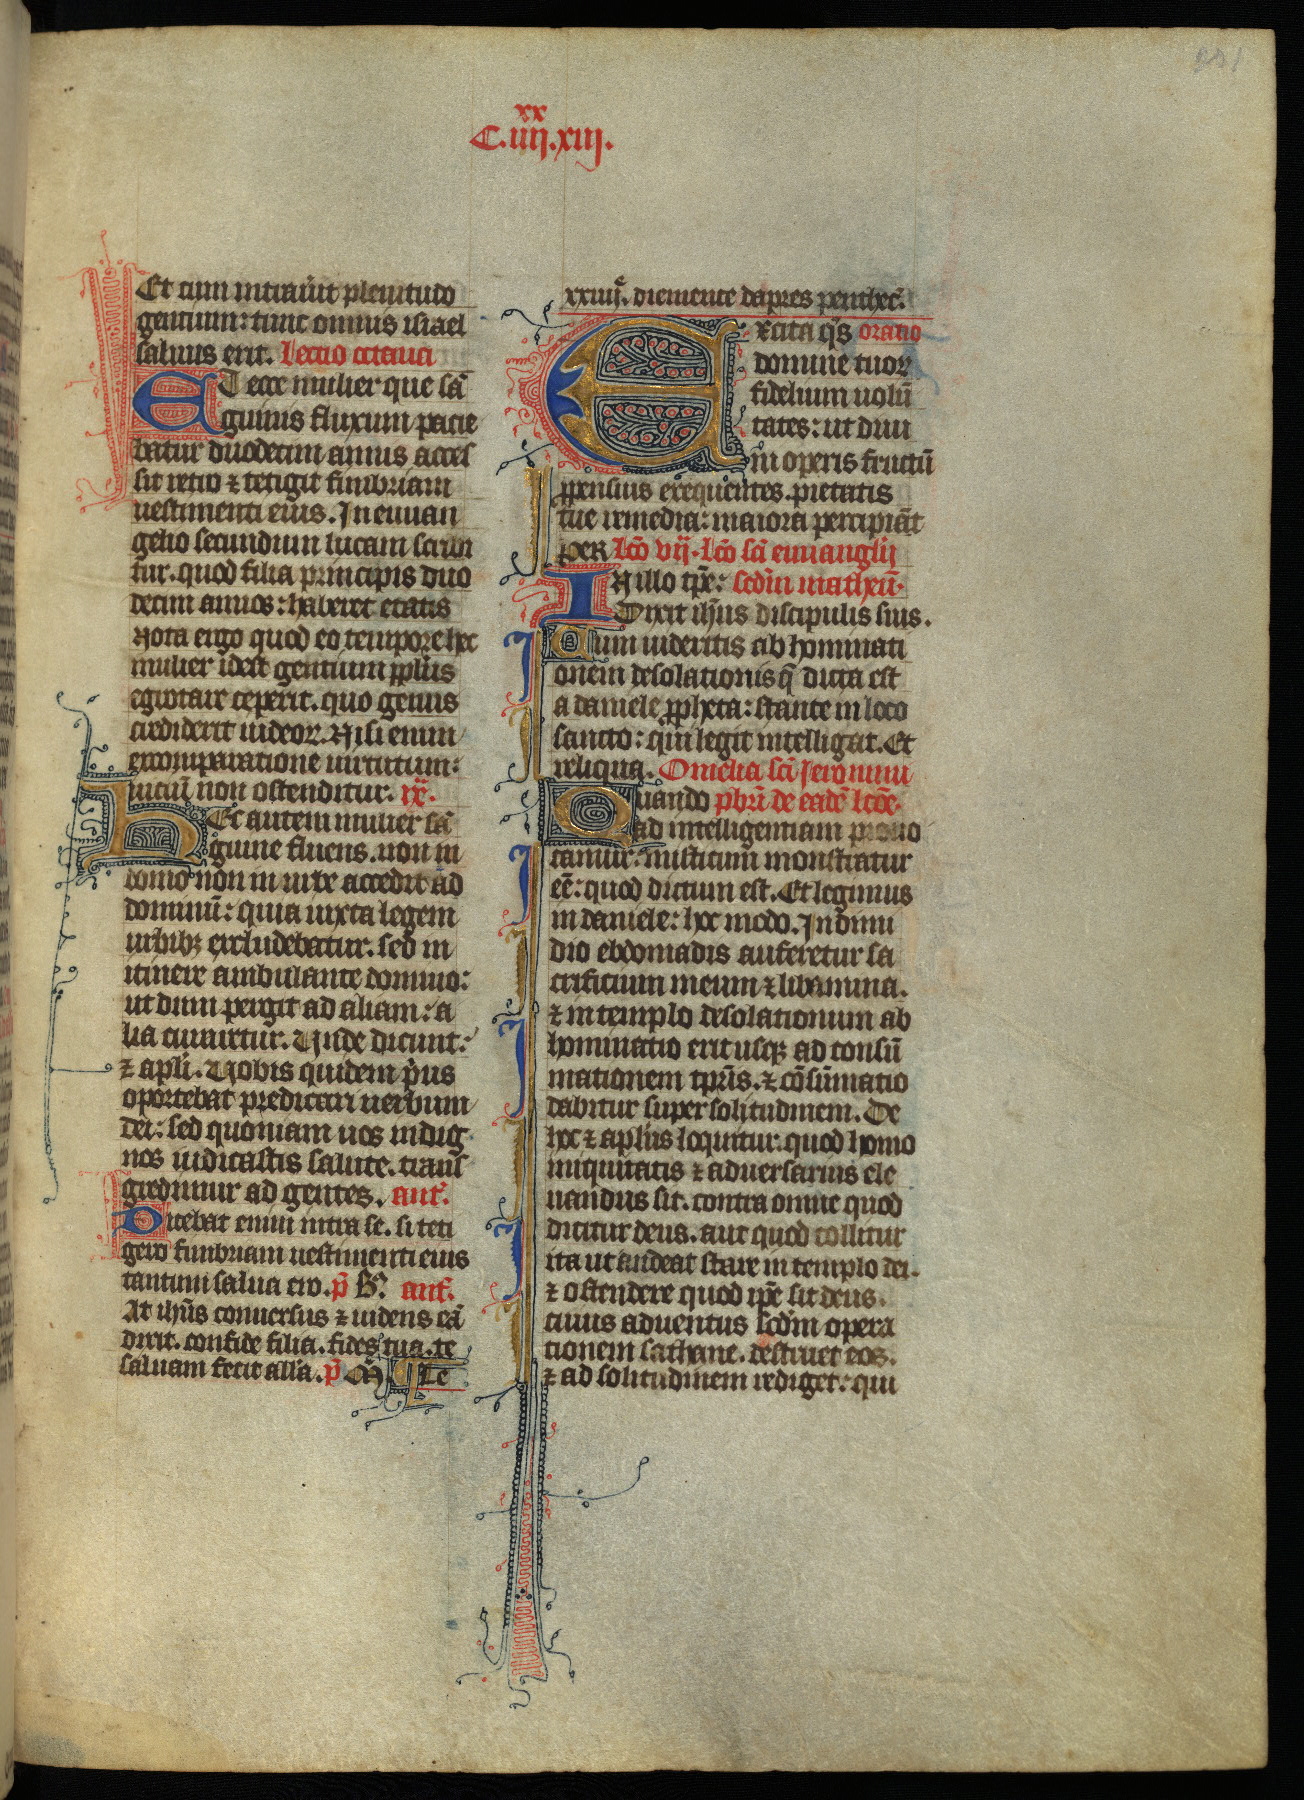 xx
C.iiij.xiij.
Et cum intrau̾it plenitudo
gentium: tunc omnis israel
saluus erit. Lectio octaua
ET ecce mulier que sā
guinis fluxum pacie
batur duodecim annis acces
sit retro ⁊ tetigit fimbriam
uestimenti eius. In euuan
gelio secundum lucam scribi
tur. quod filia principis duo
decim annos: haberet etatis
Nota ergo quod eo tempore hec
mulier idest gentium pplꝰs
egrotare ceperit. quo genus
crediderit iudeor̄. Nisi enim
excomparatione uirtutum:
uiciū non ostenditur. ix̄.
HEc autem mulier sā
guine fluens. non in
domo non in urbe accedit ad
dominū: quia iuxta legem
urbibꝫ excludebatur. sed in
itinere ambulante domino:
ut dum pergit ad aliam: a
lia curaretur. Unde dicunt:
⁊ apl̄i. Uobis quidem p̄us
oportebat predicari uerbum
dei: sed quoniam uos indig
nos iudicastis salute. trans
gredimur ad gentes. ant̄.
Dicebat enim intra se. si teti
gero fimbriam uestimenti eius
tantum salua ero. p̄ B̄. ant̄.
At ih̄us conuersus ⁊ uidens eā
dixit. confide filia. fides tua. te
saluam fecit all̄a. p̄ M̄ Te
xxiiij. diemence dapres penthec̄.
Excita q̄s oratio
domine tuor̄
fidelium uolū
tates: ut diui
ni operis fructū
ꝓpensius exequentes. pietatis
tue remedia: maiora percipiāt
PER Lc̄o vij. Lc̄o sc̄i euuanglij
IN illo tp̄e: sec̄dm matheū.
Dixit ih̄us discipulis suis.
Cum uideritis abhominati
onem desolationis q̄ dicta est
a daniele ꝓpheta: stante in loco
sancto: qui legit intelligat. Et
reliqua. Omelia sc̄i Jeronimi
Quando pb̄ri de eadē lc̄oē.
ad intelligentiam prouo
camur: misticum monstratur
eē: quod dictum est. Et legimus
in daniele: hoc modo. In dimi
dio ebdomadis auferetur sa
crificium meum ⁊ libamina.
⁊ in templo desolationum ab
hominatio erit usqꝫ ad consū
mationem tp̄ris. ⁊ cōsūmatio
dabitur super solitudinem. De
hoc ⁊ apl̄us loquitur. quod homo
iniquitatis ⁊ aduersarius ele
uandus sit. contra omne quod
dicitur deus. aut quod collitur
ita ut audeat stare in templo dei.
⁊ ostendere quod ip̄e sit deus.
cuius aduentus sec̄dm opera
tionem sathane. destruet eos.
⁊ ad solitudinem rediget: qui